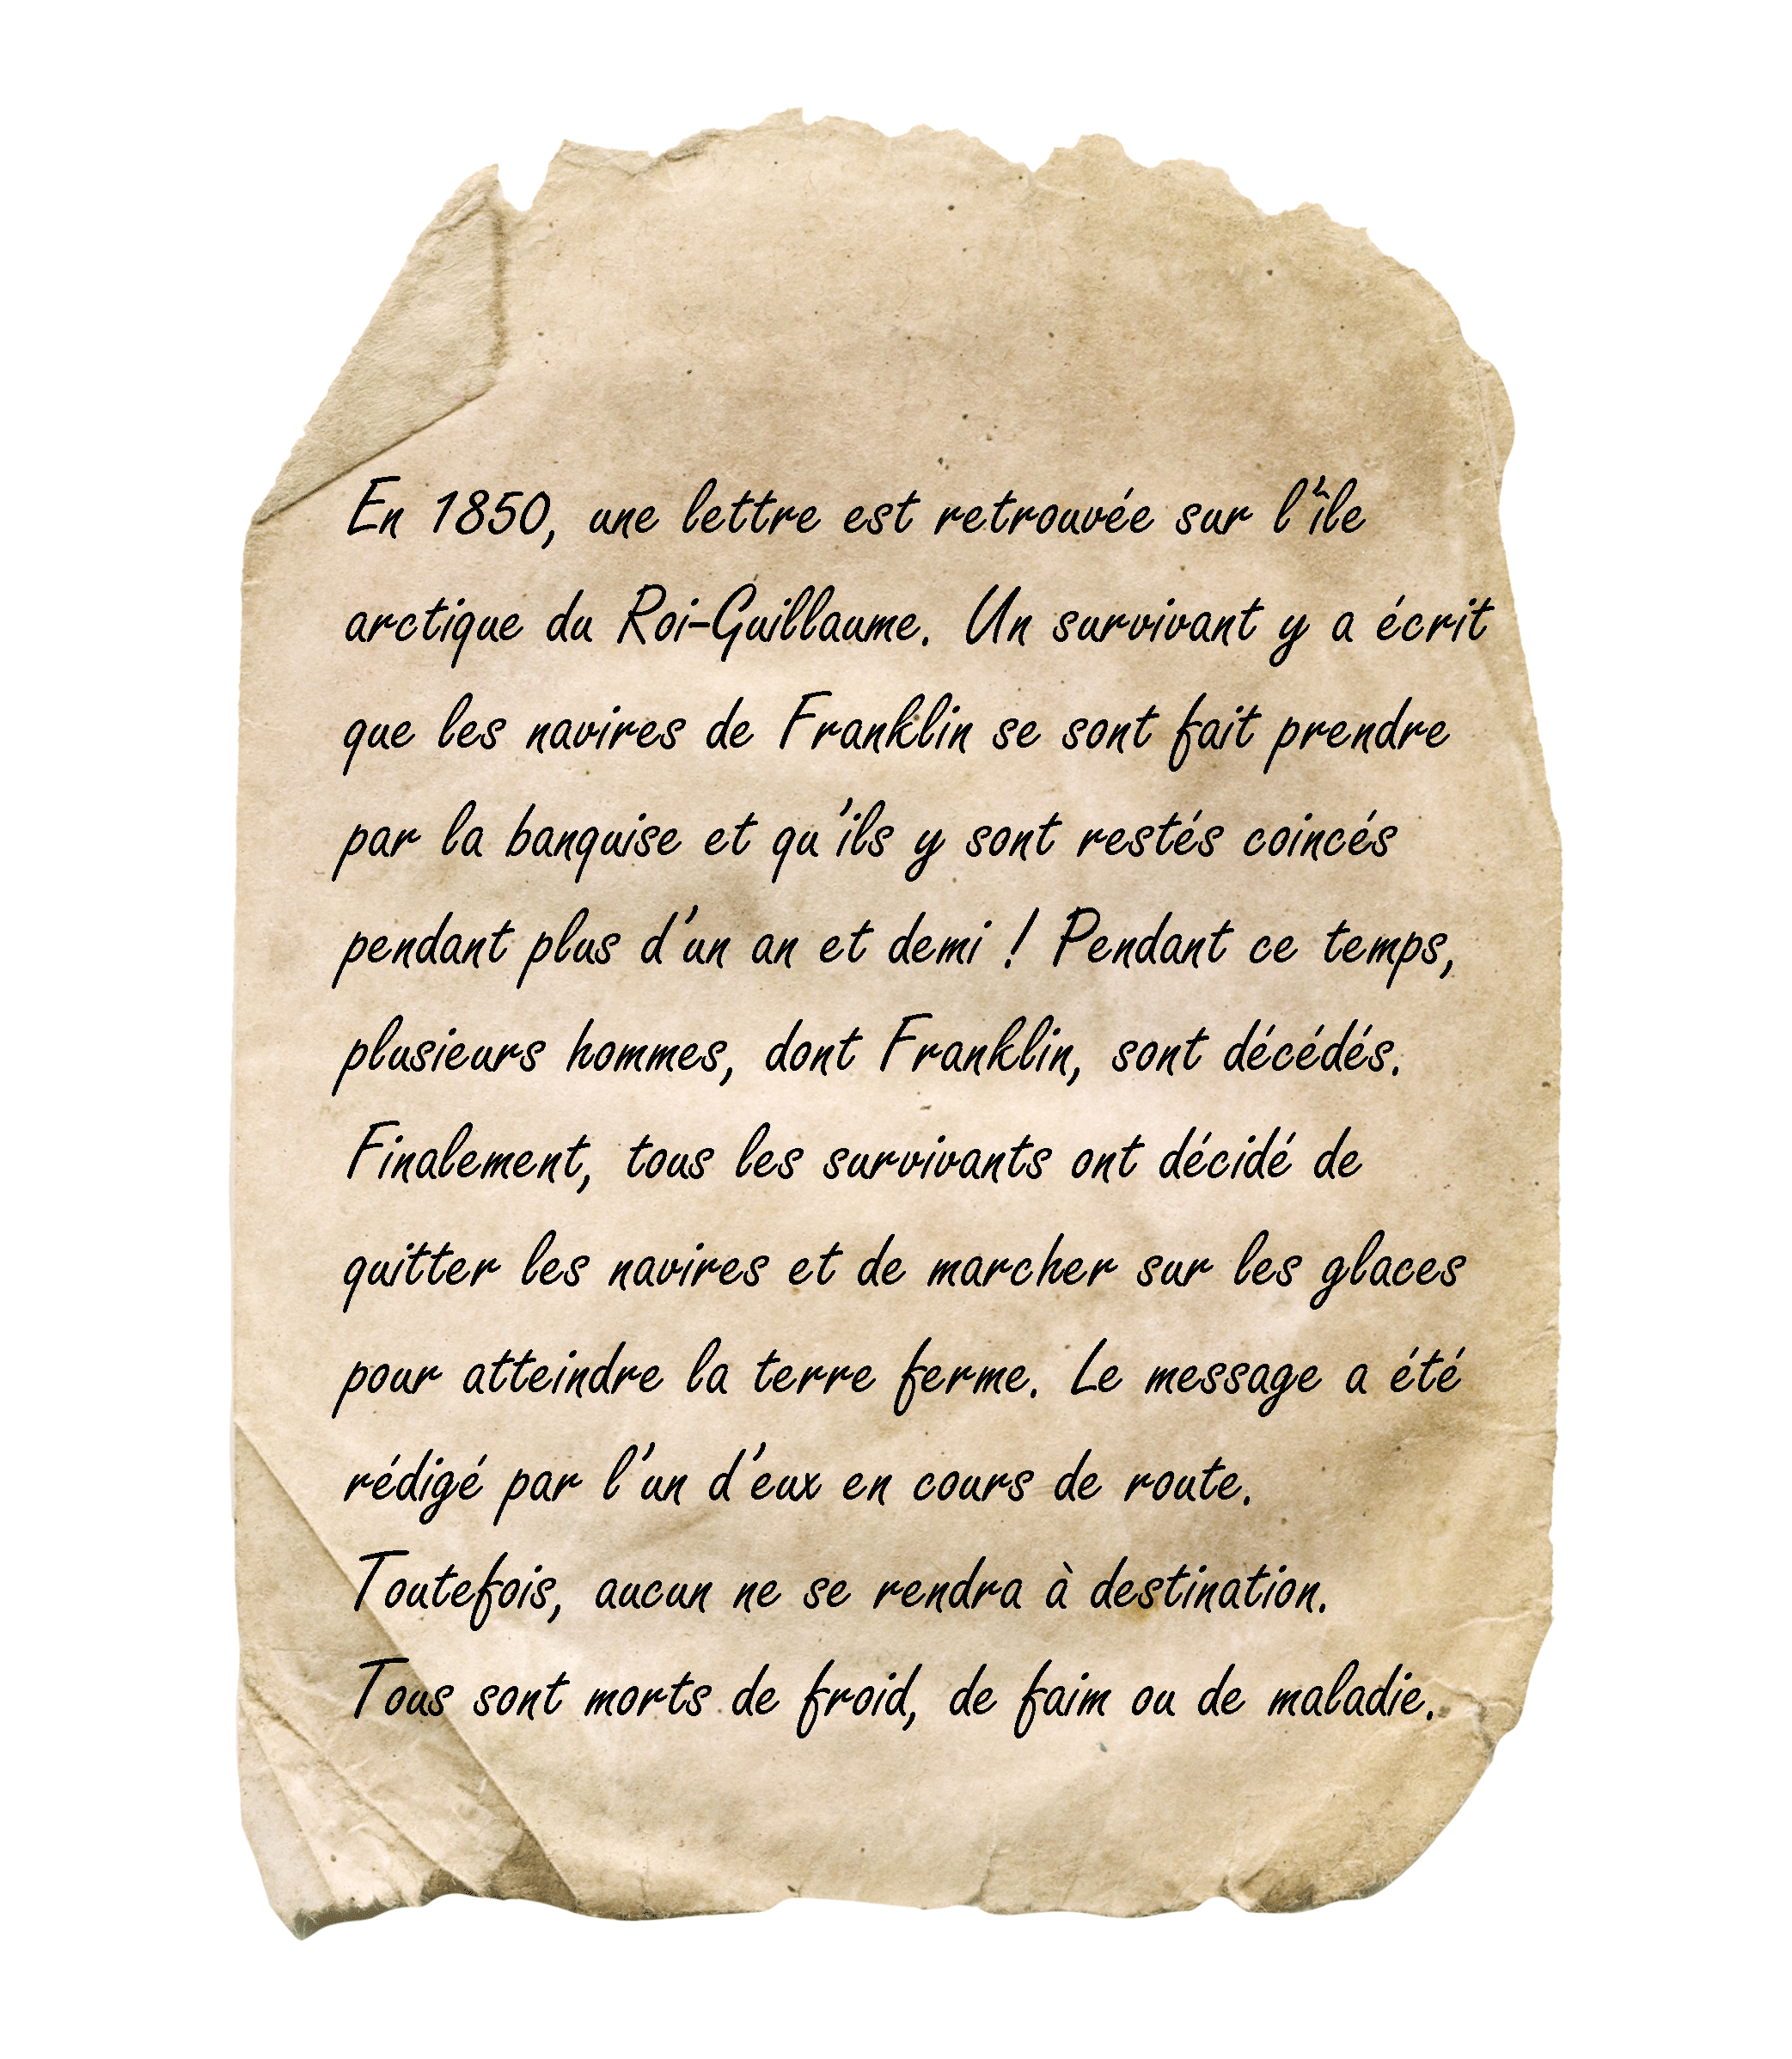 En 1850, une lettre est retrouvée sur l'île
arctique du Roi-Guillaume. Un survivant y a écrit
que les navires de Franklin se sont fait prendre
par la banquise et qu'ils y sont restés coincés
pendant plus d'un an et demi ! Pendant ce temps,
plusieurs hommes, dont Franklin, sont décédés.
Finalement, tous les survivants ont décidé de
quitter les navires et de marcher sur les glaces
pour atteindre la terre ferme. Le message a été
rédigé par l'un d'eux en cours de route.
Toutefois, aucun ne se rendra à destination.
Tous sont morts de froid, de faim ou de maladie.